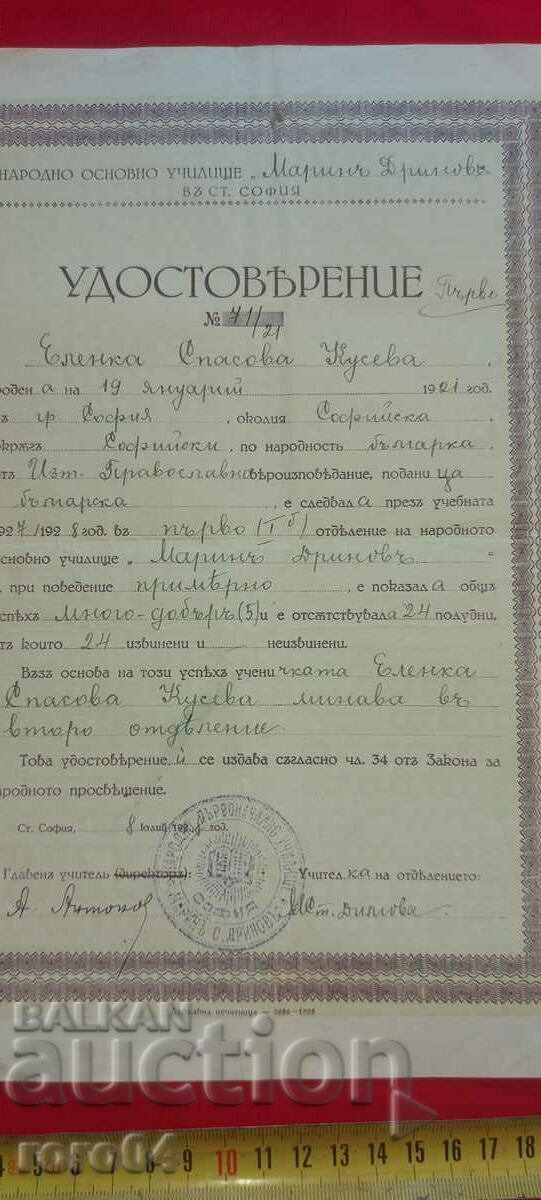 НАРОДНО ОСНОВНО УЧИЛИЩЕ „Маринъ Дриновъ"
ВЪ СТ. СОФИЯ
УДОСТОВѢРЕНИЕ Първо
№ 71/21
Еленка Спасова Кусева
оденa на 19 януарий 1921 год.
гр. София, околия Софийска
Софийски, по народность българка
Изт-Православно вѣроизповѣдание, подани ца
българска, е следвал а през учебната
927/1928 год. въ първо (I б) отдѣление на народното
сновно училище „Маринъ Дриновъ"
, при поведение примѣрно, е показал а общъ
спѣхъ много-добъръ (5) и е отсѫтствувала 24 полудни,
тъ които 24 извинени и неизвинени.
Възъ основа на този успѣхъ учени чката Еленка
Спасова Кусева минава въ
второ отдѣление.
Това удостовѣрение й се издава съгласно чл. 34 отъ Закона за
ародното просвѣщение.
Ст. София, 8 Юлий 1928 год.
Главенъ учител (директоръ): Учител ка на отдѣлението:
А. Антонов Ст. Димова
НАРОДНО ПЪРВОНАЧАЛНО УЧИЛИЩЕ
МАРИНЪ С. ДРИНОВЪ
СОФИЯ
Държавна печатница
BALKAN
auction
roro04
4 5 6 7 8 9 10 11 12 13 14 15 16 17 18